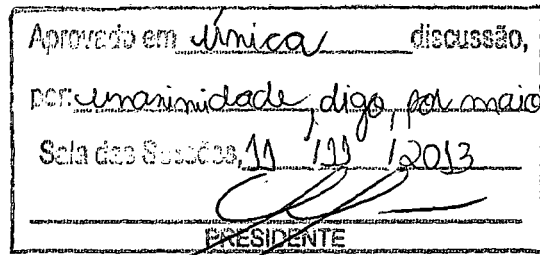 Aprovado em única discussão,
por: unanimidade, digo, por maio
Sala das Sessões, 11 / 11 / 2013
PRESIDENTE